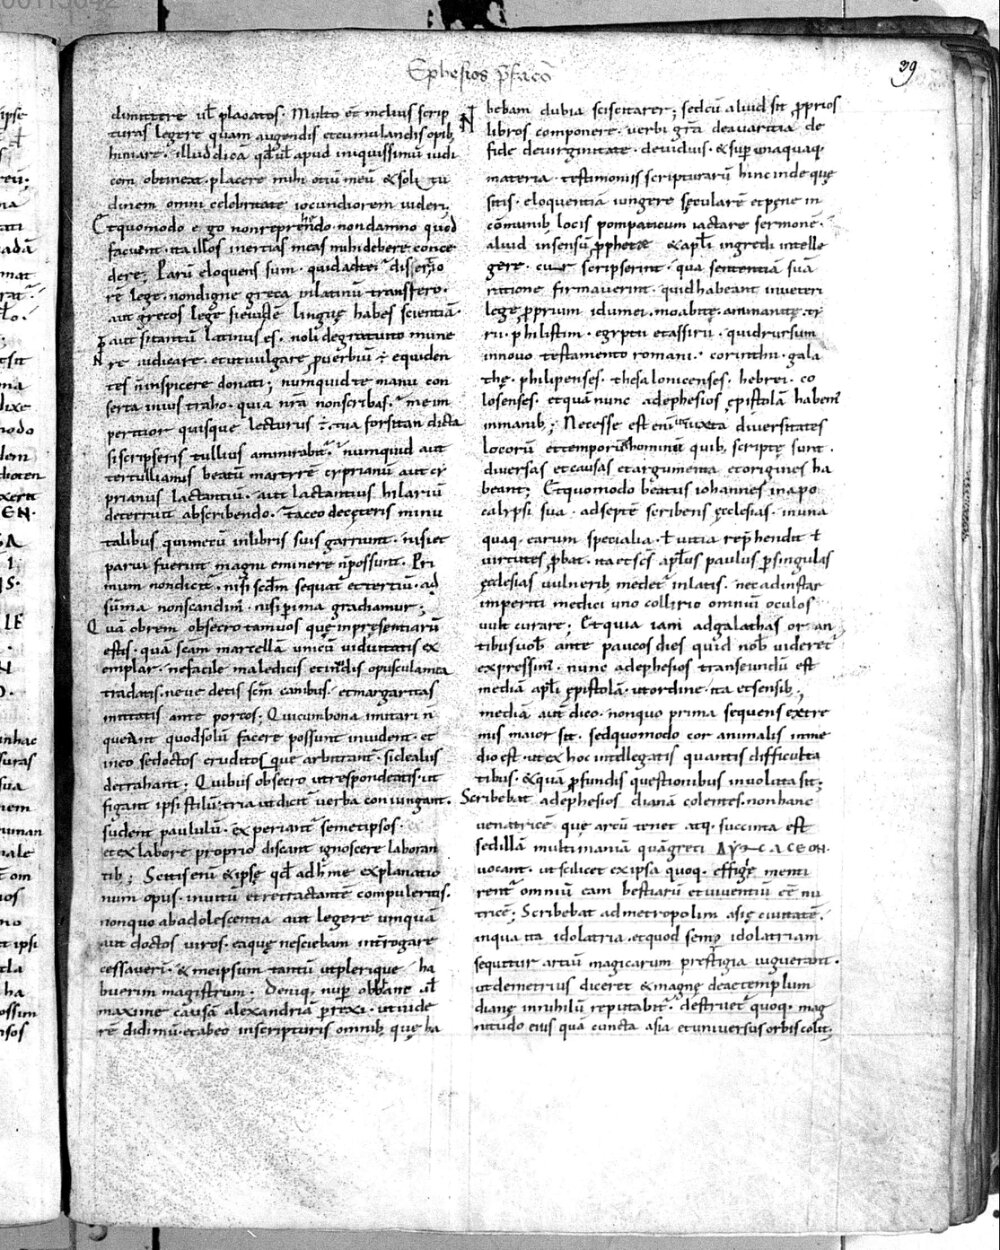 Ephesios p̄facō
39
dimittere ul̄ placatos. Multo ēē melius scrip
turas legere quam augendis etcumulandis opib;
hinniare. illud dicā qd̄ ul̄ apud iniquissimū iudi
cem obtineat. placere mihi otiū meū & soli tu
dinem omni celebritate iocundiorem uideri.
Etquomodo ego nonreprehendo. nondamno quod
faciunt. ita illos inertias meas mihi debere conce
dere; Parū eloquens sum. quid ad te? disertio
rē lege. nondigne greca inlatinū transfero.
aut grecos lege si eiusdē linguę habes scientiā
aut sitantū latinus es. noli degratuito mune
re iudicare. etutuulgare puerbiū ÷ equiden
tes n̄inspicere donati; numquid te manu con
serta inius traho. quia nr̄a nonscribas. me im
peritior quisque lecturus ÷. tua forsitan dicta
siscripseris tullius ammirabit̄. numquid aut
tertullianus beatū martyrē cyprianū aut cy
prianus lactantiū. aut lactantius hilariū
deterruit abscribendo. Taceo deceteris minu
talibus quimecū inlibris suis garriunt. nisiet
parui fuerint magni eminere n̄possunt. Pri
mum nondicit̄. nisi sedm̄ sequat̄ ettertiū. ad
sūma nonscandim̄. nisi p̄ima gradiamur;
Quā obrem obsecro tamuos quę inpresentiarū
estis. quā scam marcellā unicū uiduitatis ex
emplar. nefacile maledicis etinuidis opuscula mea
tradatis. neue detis scm̄ canibus. etmargaritas
mittatis ante porcos; Quicumbona imitari n̄
queant quodsolū facere possunt inuident. et
ineo sedoctos eruditos que arbitrant̄. sidealiis
detrahant; Quibus obsecro utrespondeatis. ut
figant ipsi stilū. tria utdicit̄ uerba coniungant.
sudent paululū. experiant̄ semetipsos.
et exlabore proprio discant ignoscere laboran
tib; Scitis enī & ipsę qd̄ ad hme explanatio
num opus. inuitū etretractantē compuleritis.
nonquo abadolescentia aut legere umquā
aut doctos uiros. eaquę nesciebam int̄rogare
cessauerī. & meipsum tantū utplerique ha
buerim magistrum. Deniq; nup̄ obhanc ul̄
maxime causā alexandriā p̄rexi. utuide
rē didimū. etabeo inscripturis omnib; quę ha
bebam dubia sciscitarer; sedcū aliud sit p̄prios
libros componere. uerbi gr̄a deauaritia de
fide deuirginitate. deuiduis. & sup̄ unaquaq;
materia. testimoniis scripturarū hincinde quę
sitis. eloquentiā iungere sęculare etpęne in
cōmunib; locis pompaticum iactare sermonē.
aliud insensū p̄phetę & apl̄i ingredi intelle
gere. cur scripserint. qua sententiā suā
ratione firmauerint. quid habeant inueteri
lege p̄prium idumei. moabitę. ammanitę. ty
rii. philistim. egyptii etassirii. quidrursum
innouo testamento romani. corinthii. gala
thę. philipenses. thesalonicenses. hebrei. co
losenses. etquā nunc adephesios ępistolā habem̄
inmanib; Necesse est enī utiuxta diuersitates
locorū ettemporū &hominū quib; scriptę sunt.
diuersas etcausas etargumenta etorigines ha
beant; Etquomodo beatus iohannes inapo
calypsi sua. adseptē scribens ęcclesias. inuna
quaq; earum specialia. ł uitia rep̄hendit ł
uirtutes p̄bat. ita etsc̄s apl̄us paulus p̄singulas
ęcalesias uulnerib; medet̄ inlatis. necadinstar
imperiti medici uno collirio omniū oculos
uult curare; Etquia iam adgalathas or an
tibusuob̄ ante paucos dies quid nob̄ uideret̄
expressim̄. nunc adephesios transeundū est
mediā apl̄i ępistolā. utordine. ita etsensib;
mediā autē dico. nonquo prima sequens extre
mis maior sit. sedquomodo cor animalis inme
dio est. utex hoc intellegatis quantis difficulta
tibus. & quā p̄fundis questionibus inuoluta sit;
Scribebat adephesios dianā colentes. nonhanc
uenatricē que arcū tenet atq; succinta est
sedillā multimamiā quāgreci
uocant. utscilicet exipsa quoq; effigię menti
rent̄ omniū eam bestiarū etuiuentiū eē nu
tricē; Scribebat admetropolim asię ciuitatē.
inqua ita idolatria. etquod semp̄ idolatriam
sequitur artiū magicarum prestigia uiguerant.
utdemetrius diceret & magnę deaetemplum
dianę innihilū reputabit̄. destruet̄ quoq; mag
nitudo eius quā cuncta asia etuniuersus orbis colit;